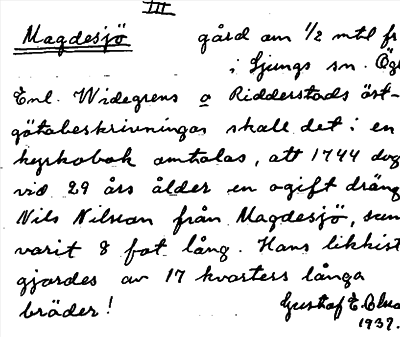 III
Magdesjö gård om 1/2 mtl fr
i Ljungs sn. Ög
Enl. Widegrens o Ridderstads öst-
götabeskrivningar skall det i en
kyrkobok omtalas, att 1744 dog
vid 29 års ålder en ogift dräng
Nils Nilsson från Magdesjö, som
varit 8 fot lång. Hans likkist
gjordes av 17 kvarters långa
bräder!
Gustaf E.
1937.